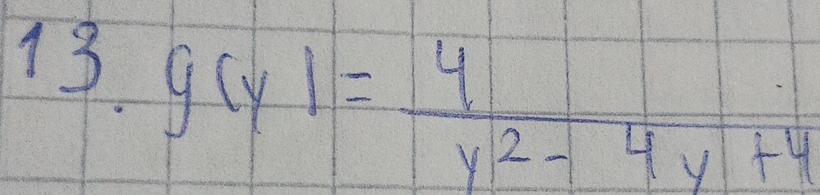 13. g(y) = 4 / y² - 4y + 4